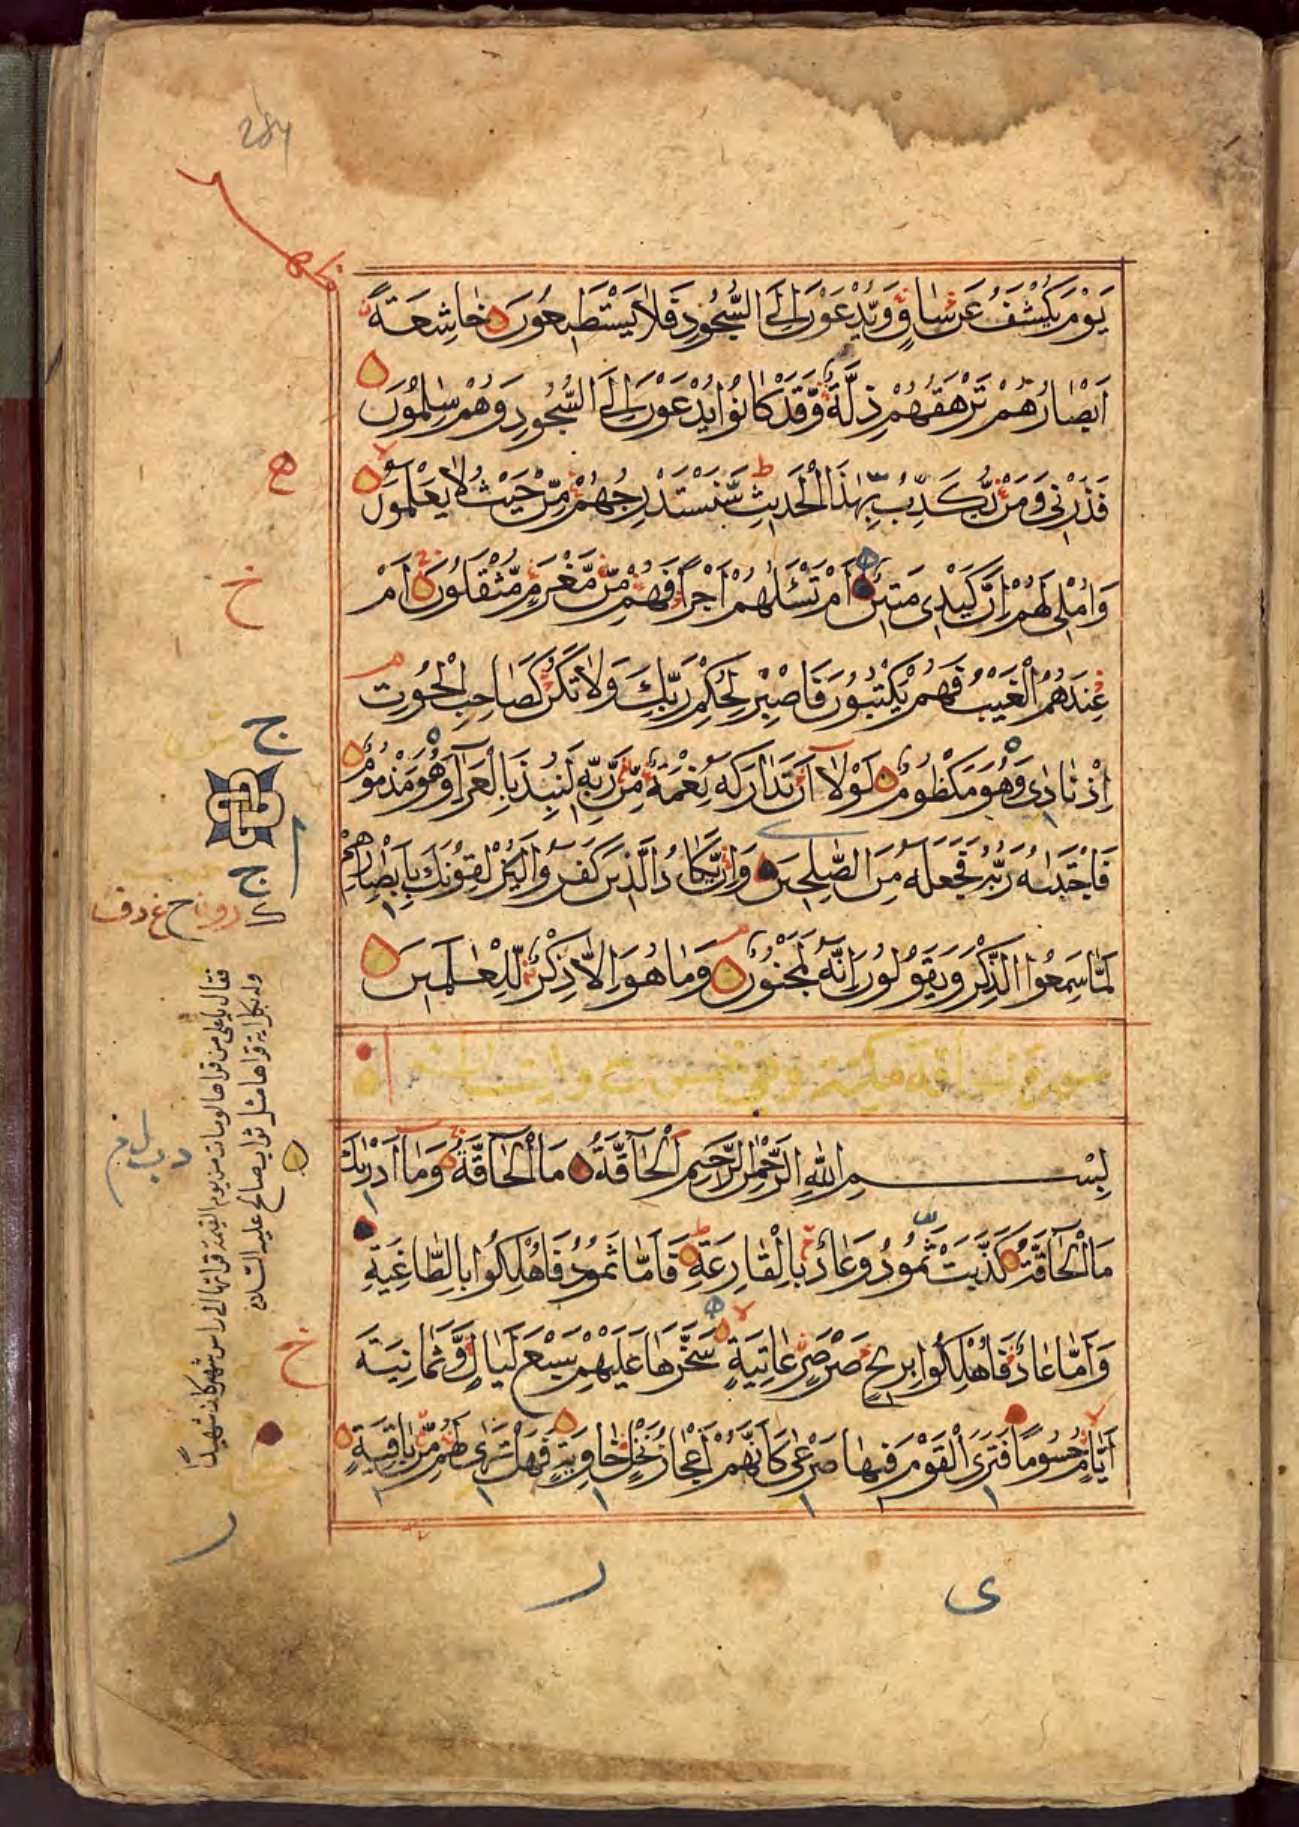 284
يَوْمَ يُكْشَفُ عَنْ سَاقٍ وَّيُدْعَوْنَ اِلَى السُّجُوْدِ فَلَا يَسْتَطِيعُوْنَ خَاشِعَةً
اَبْصَارُهُمْ تَرْهَقُهُمْ ذِلَّةٌ وَّقَدْ كَانُوْا يُدْعَوْنَ اِلَى السُّجُودِ وَهُمْ سٰلِمُوْنَ
فَذَرْنِي وَمَنْ يُّكَذِّبُ بِهٰذَا الْحَدِيثِ سَنَسْتَدْرِجُهُمْ مِّنْ حَيْثُ لَا يَعْلَمُوْنَ
وَاُمْلِي لَهُمْ اِنَّ كَيْدِي مَتِيْنٌ اَمْ تَسْئَلُهُمْ اَجْرًا فَهُمْ مِّنْ مَّغْرَمٍ مُّثْقَلُوْنَ اَمْ
عِنْدَهُمُ الْغَيْبُ فَهُمْ يَكْتُبُوْنَ فَاصْبِرْ لِحُكْمِ رَبِّكَ وَلَا تَكُنْ كَصَاحِبِ الْحُوْتِ
اِذْ نَادٰى وَهُوَ مَكْظُوْمٌ لَوْلَا اَنْ تَدَارَكَهُ نِعْمَةٌ مِّنْ رَّبِّهٖ لَنُبِذَ بِالْعَرَآءِ وَهُوَ مَذْمُوْمٌ
فَاجْتَبٰىهُ رَبُّهُ فَجَعَلَهُ مِنَ الصّٰلِحِيْنَ وَاِنْ يَّكَادُ الَّذِيْنَ كَفَرُوْا لَيُزْلِقُوْنَكَ بِاَبْصَارِهِمْ
لَمَّا سَمِعُوا الذِّكْرَ وَيَقُوْلُوْنَ اِنَّهُ لَمَجْنُوْنٌ وَمَا هُوَ اِلَّا ذِكْرٌ لِّلْعٰلَمِيْنَ
بِسْمِ اللّٰهِ الرَّحْمٰنِ الرَّحِيْمِ اَلْحَآقَّةُ مَا الْحَآقَّةُ وَمَآ اَدْرٰىكَ
مَا الْحَآقَّةُ كَذَّبَتْ ثَمُوْدُ وَعَادٌ بِالْقَارِعَةِ فَاَمَّا ثَمُوْدُ فَاُهْلِكُوْا بِالطَّاغِيَةِ
وَاَمَّا عَادٌ فَاُهْلِكُوْا بِرِيْحٍ صَرْصَرٍ عَاتِيَةٍ سَخَّرَهَا عَلَيْهِمْ سَبْعَ لَيَالٍ وَّثَمَانِيَةَ
اَيَّامٍ حُسُوْمًا فَتَرَى الْقَوْمَ فِيْهَا صَرْعٰى كَاَنَّهُمْ اَعْجَازُ نَخْلٍ خَاوِيَةٍ فَهَلْ تَرٰى لَهُمْ مِّنْ بَاقِيَةٍ
فقال يا علي من قراها لو مات من يوم القيمة قراتها الى راس شهر كان شهيدا
وله بكل اية قراها مثل ثواب صالح عليه السلام